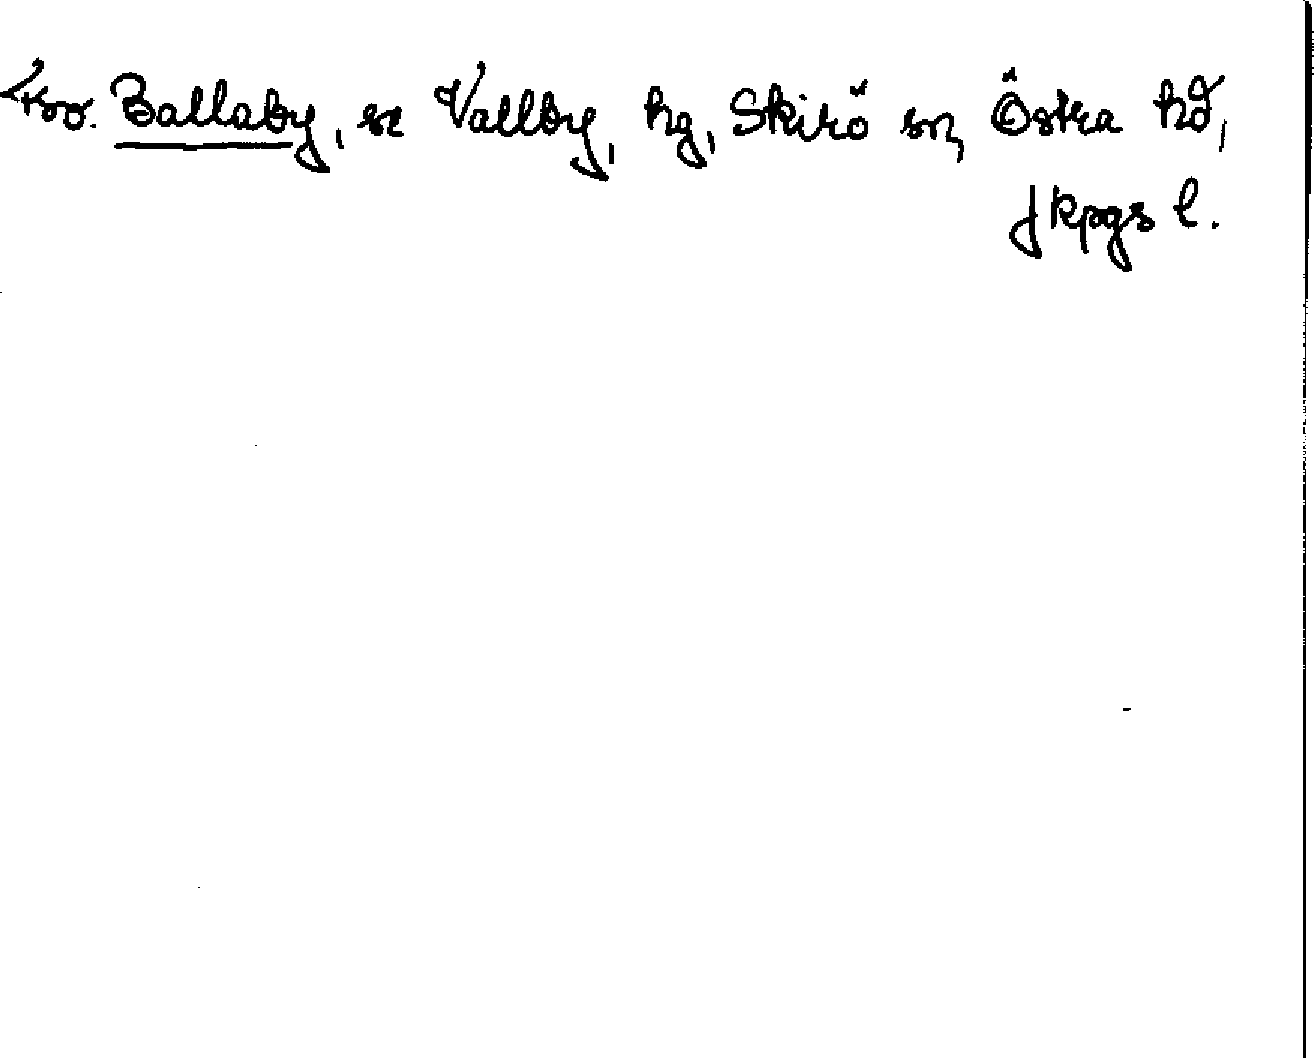 Kvv. Ballaby, se Vallby, hg, Skirö sn, Östra hd,
Jkpgs l.